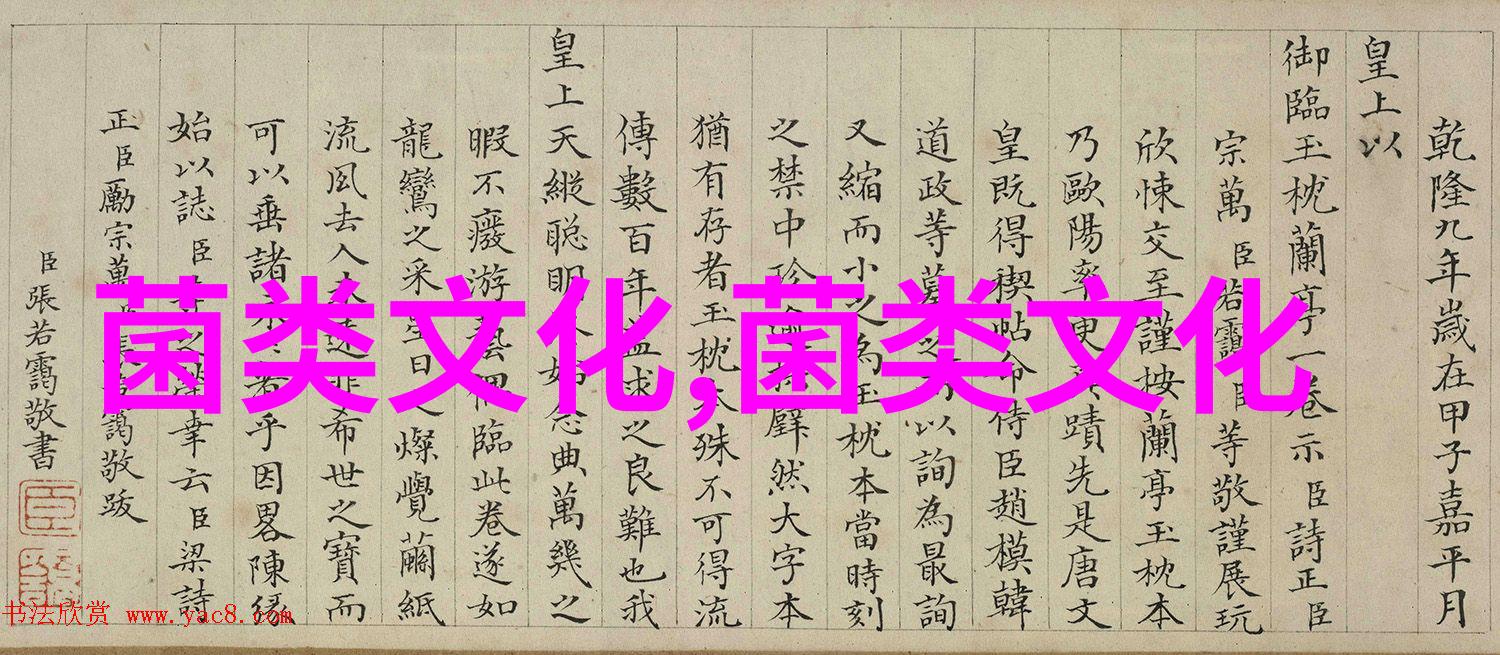 乾隆九年歲在甲子嘉平月
皇上以
御臨玉枕蘭亭一卷示臣詩正臣
宗萬臣若靄臣等敬謹展玩
欣悚交至謹按蘭亭玉枕本
乃歐陽率更蹟先是唐文
皇既得禊帖命侍臣趙模韓
道政等摹之以詢為最詢
又縮而小之為玉枕本當時刻
之禁中珍璧然大字本
猶有存者玉枕本殊不可得流
傳數百年益求之良難也我
皇上天縱聰明念典萬幾之
暇不癈游藝臨此卷遂如
龍鸞之采星日之燦覺繭紙
流風去人未遠非希世之寶而
可以垂諸永者乎因畧陳緣
始以誌臣等之幸云臣梁詩
正臣勵宗萬靄敬跋
臣張若靄敬書
菌类文化,菌类文化
书法欣赏 www.yac8.com